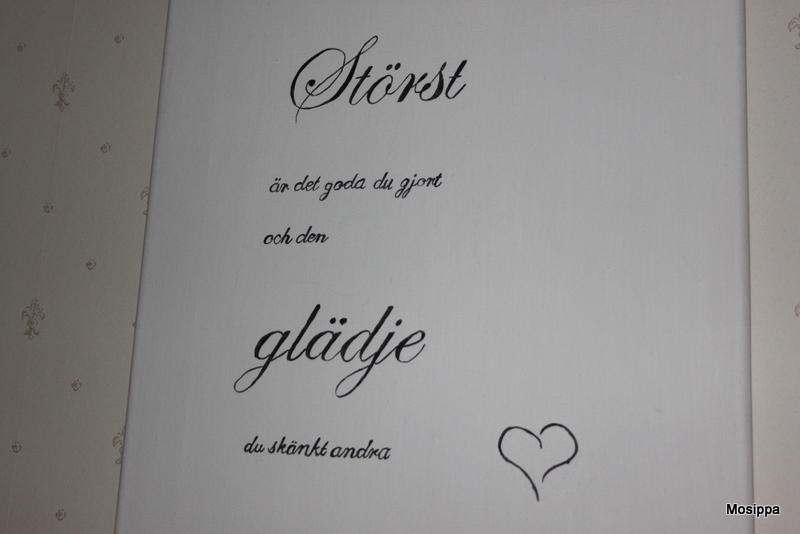 Störst
är det goda du gjort
och den
glädje
du skänkt andra
Mosippa